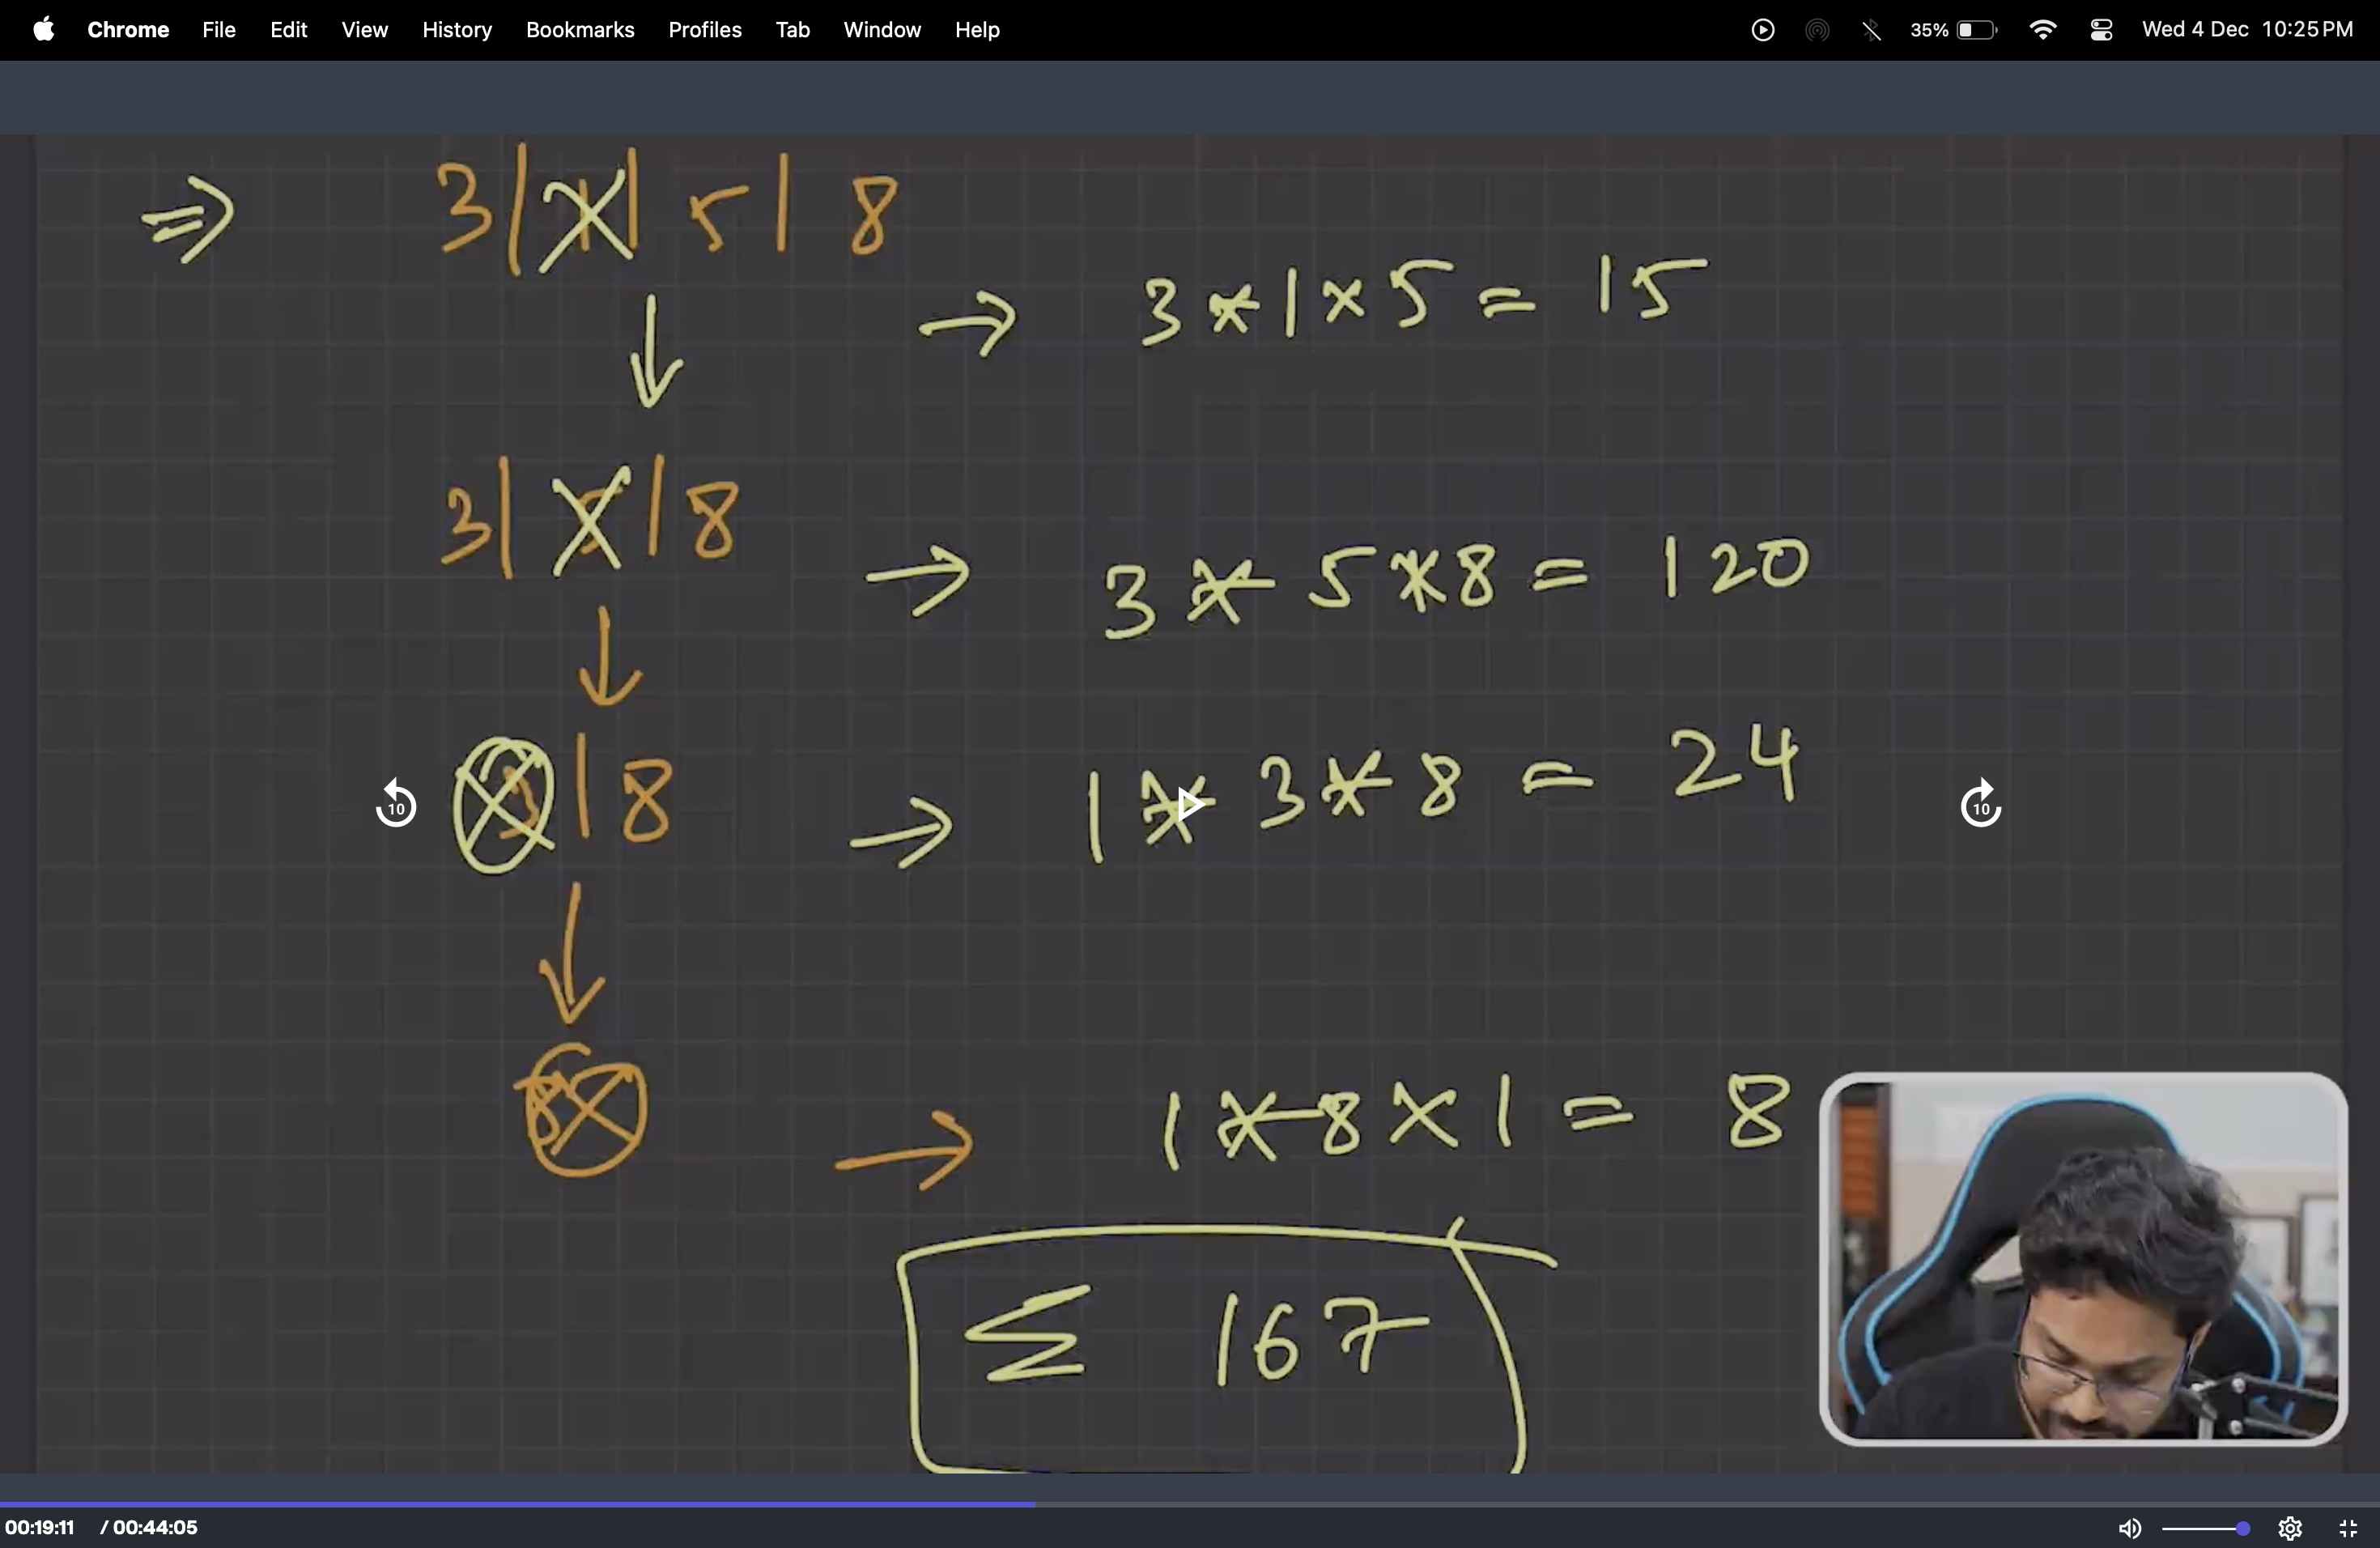 Chrome File Edit View History Bookmarks Profiles Tab Window Help 35% Wed 4 Dec 10:25 PM
⇒ 3 | 1 | 5 | 8
→ 3 * 1 × 5 = 15
↓
3 | 5 | 8
→ 3 * 5 * 8 = 120
↓
3 | 8
→ 1 * 3 * 8 = 24
10
10
↓
8
→ 1 * 8 × 1 = 8
Σ 167
00:19:11 / 00:44:05